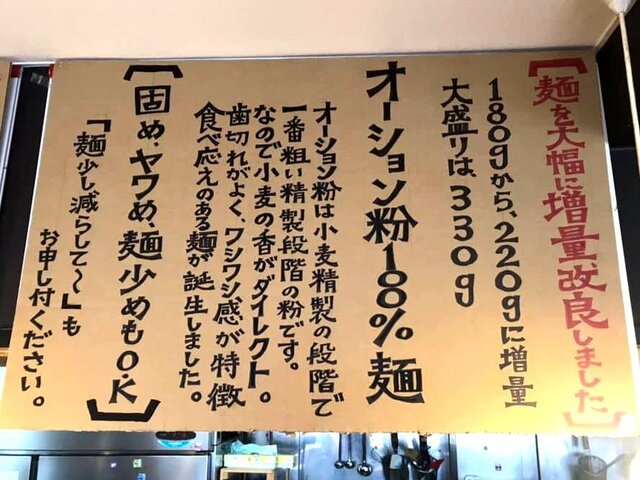 【麺を大幅に増量、改良しました】
180gから、220gに増量
大盛りは330g
オーション粉100%麺
オーション粉は小麦精製の段階で
一番粗い精製段階の粉です。
なので小麦の香がダイレクト。
歯切れがよく、ワシワシ感が特徴
食べ応えのある麺が誕生しました。
【固め、ヤワめ、麺少めもOK】
「麺少し減らして〜」も
お申し付ください。